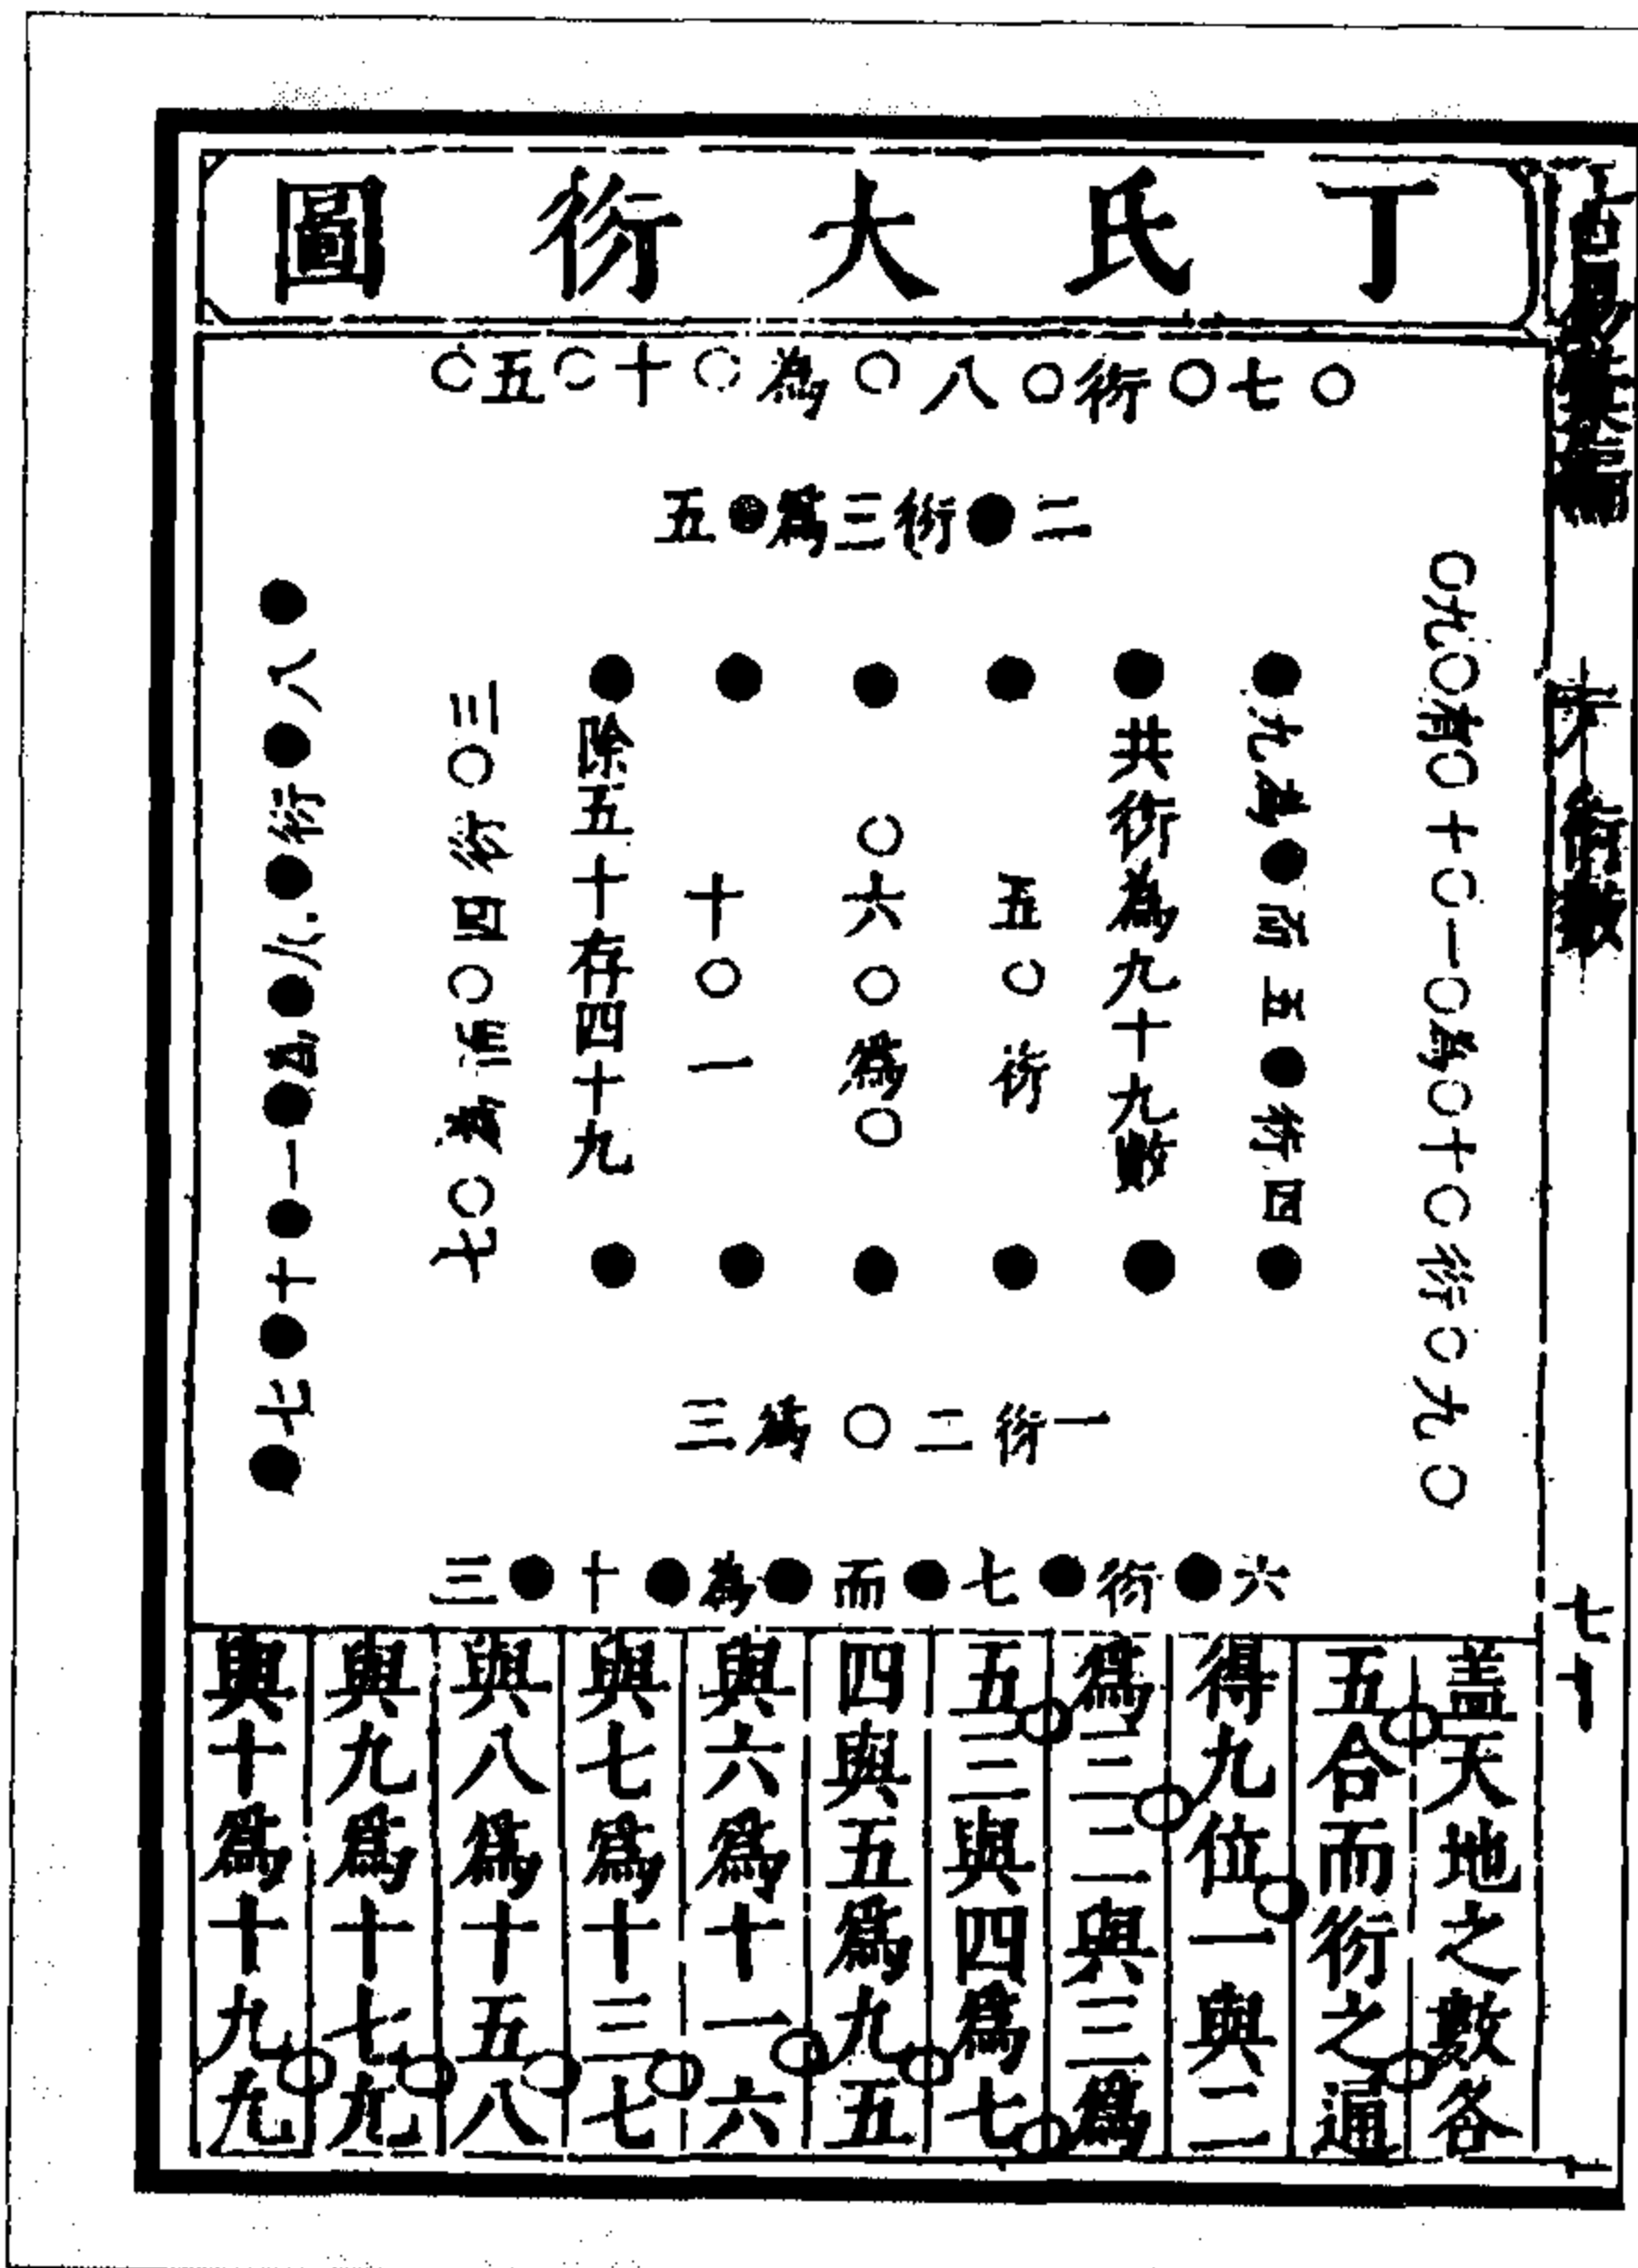 丁氏大衍圖
○七○衍○八○為○十○五○
二●衍三爲●五
○九○有○十○一○爲○十○衍○九○
●九爲●而五●衍四●
●共衍為九十九數●
●五○衍●
●○六○○爲○●
●十○一●
●除五十存四十九●
三○衍四○而爲○七
●八●衍●八●爲●一●十●七●
一衍二○爲三
六●衍●七●而●為●十●三
蓋天地之數各
五○合而衍之○通
得九位○一與二
爲三○二與三爲
五○三與四爲七○
四與五爲九○五
與六爲十一○六
與七爲十三○七
與八爲十五○八
與九爲十七○九
與十爲十九○九
大衍數
七十一